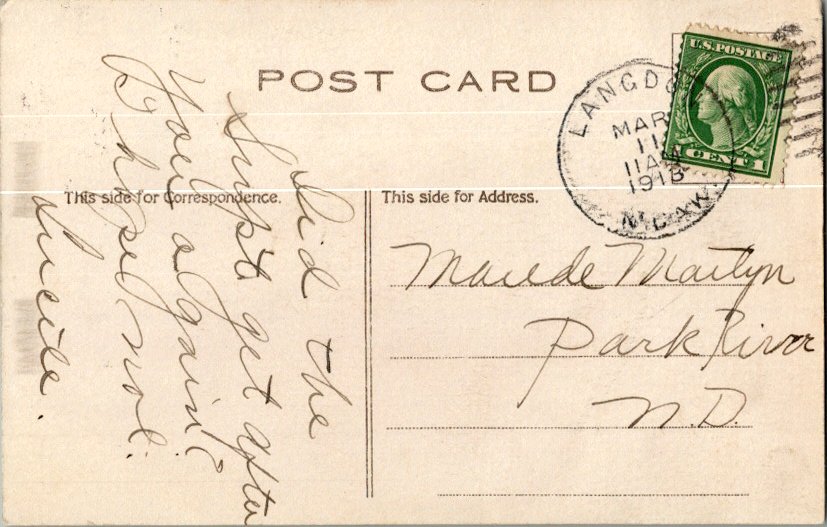 POST CARD
U.S. POSTAGE
1 CENT 1
LANGDON
MAR
11
11 AM
1913
N. DAK.
This side for Correspondence.
This side for Address.
Did the
Supt get after
You again?
I hope not.
Lucile.
Maude Martyn
Park River
N.D.